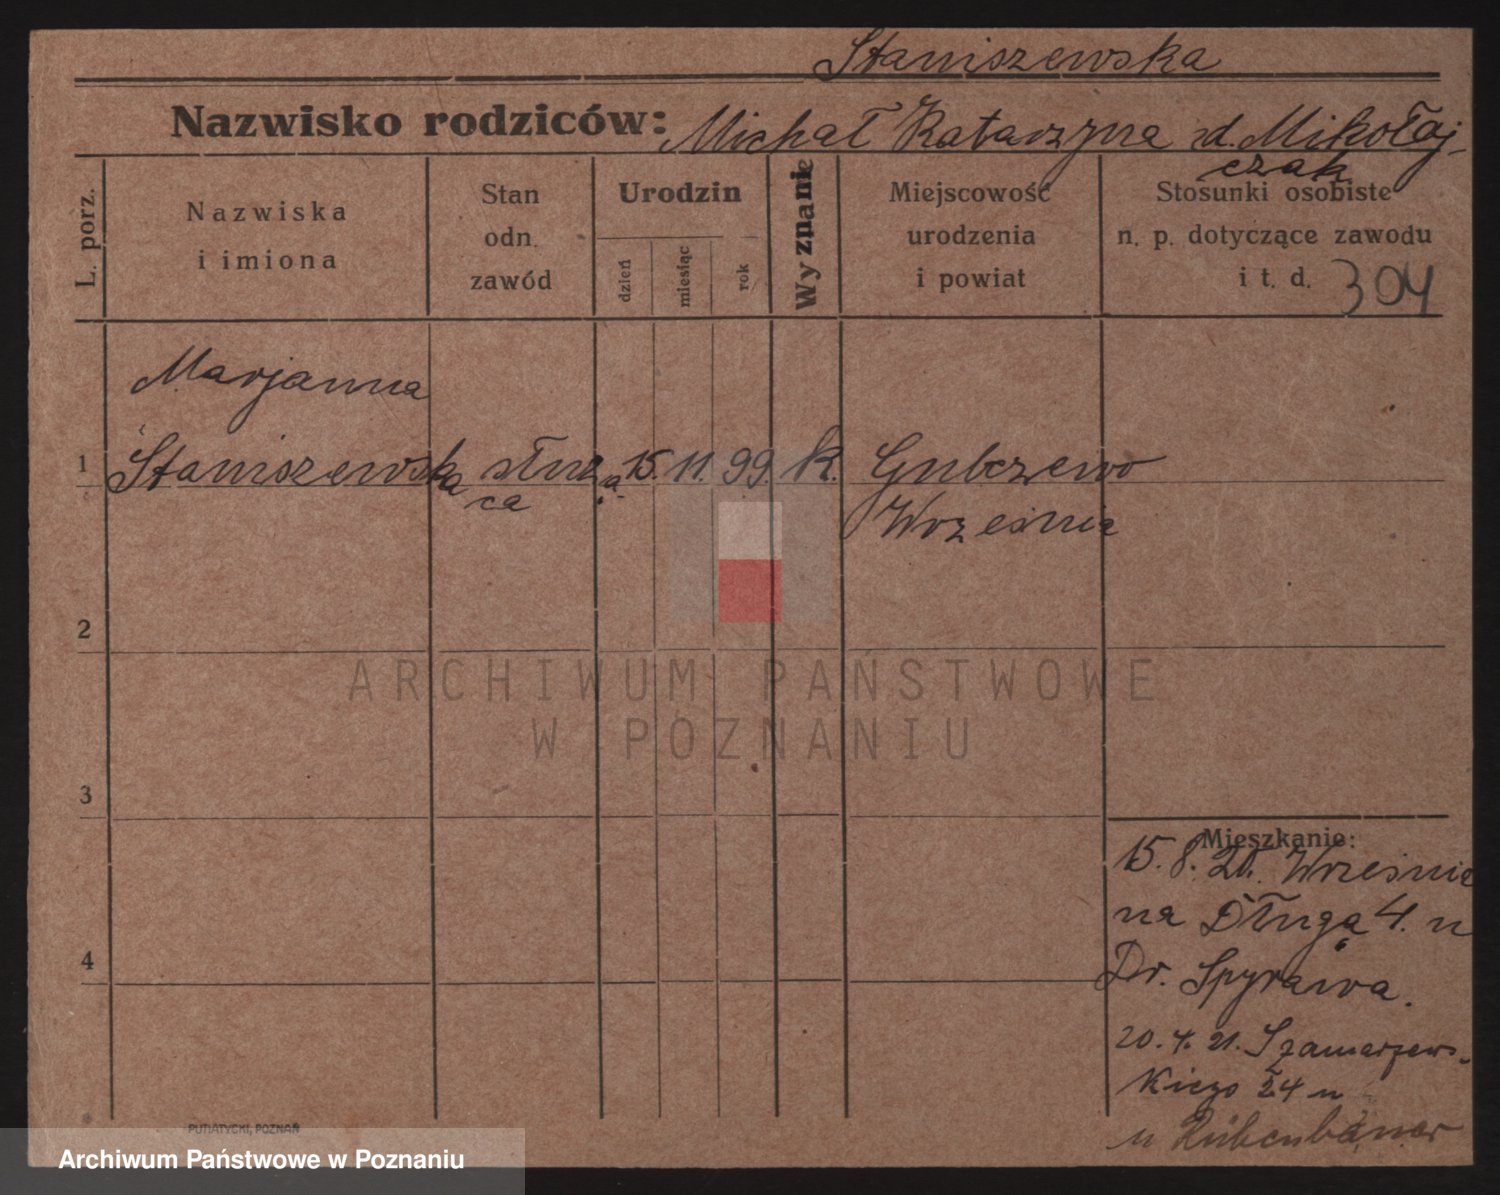 Staniszewska
Nazwisko rodziców: Michał Katarzyna zd. Mikołaj-
czak
L. porz.
Nazwiska
i imiona
Stan
odn.
zawód
Urodzin
dzień
miesiąc
rok
Wyznanie
Miejscowość
urodzenia
i powiat
Stosunki osobiste
n. p. dotyczące zawodu
i t. d. 304
Marjanna
1 Staniszewska służą- 15. 11. 99. k. Gubczewo
ca Września
2
ARCHIWUM PAŃSTWOWE
W POZNANIU
3
Mieszkanie:
15. 8. 20. Września
na Długą 4. u
Dr.
4
20. 4. 21. Szamarzews-
kiego 24 u
u
PUTIATYCKI, POZNAŃ
Archiwum Państwowe w Poznaniu